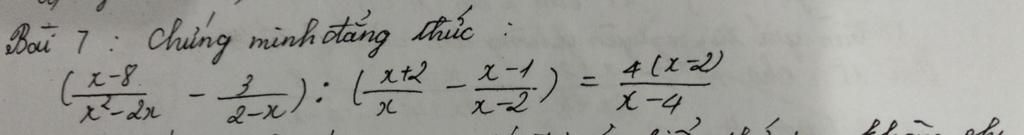 Bài 7 : Chứng minh đẳng thức :
(\frac{x-8}{x^2-2x} - \frac{3}{2-x}) : (\frac{x+2}{x} - \frac{x-1}{x-2}) = \frac{4(x-2)}{x-4}